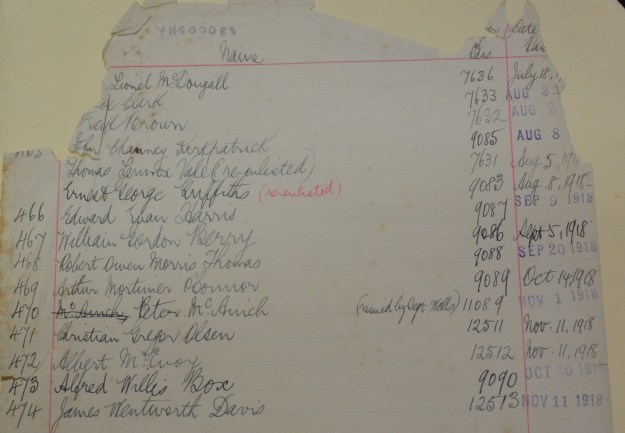 89000SHN
Date
Name
Lionel McDougall 7636 July 18,
Clark 7633 AUG 2
Fred Brown 7632 AUG 2
John Chauncy Kirkpatrick 9085 AUG 8
Thomas Lennox Vale (re-enlisted) 7631 Aug 5, 191
Ernest George Griffiths (re-enlisted) 9083 Aug 8, 1918
466 Edward Evan Harris 9087 SEP 9 1918
467 William Gordon Berry 9086 Sept 5, 1918
468 Robert Owen Morris Thomas 9088 SEP 20 1918
469 Arthur Mortimer O'Connor 9089 Oct 14, 1918
470 McAinch, Peter McAinch (issued by Capt. Wells) 11089 NOV 1 1918
471 Christian Gregor Olsen 12511 Nov. 11, 1918
472 Albert McEvoy 12512 Nov. 11, 1918
473 Alfred Willis Box 9090 OCT 30 1918
474 James Wentworth Davis 12513 NOV 11 1918